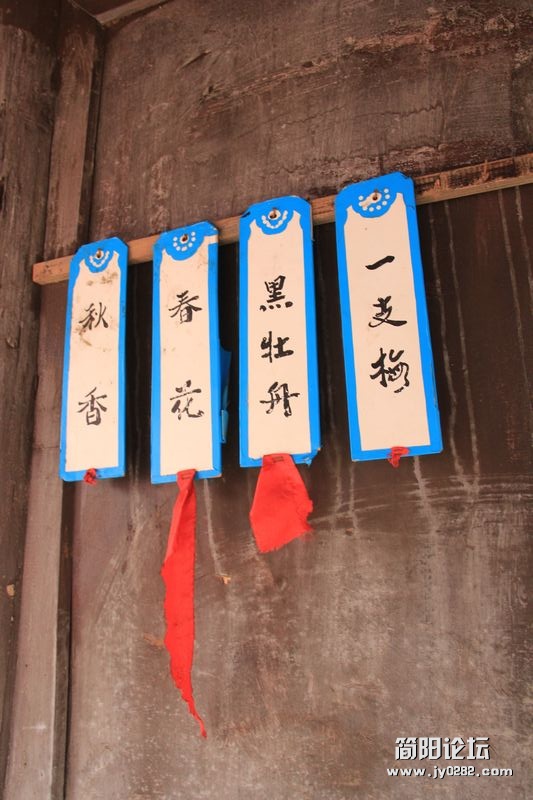 一支梅
黑牡丹
春花
秋香
简阳论坛
www.jy0282.com